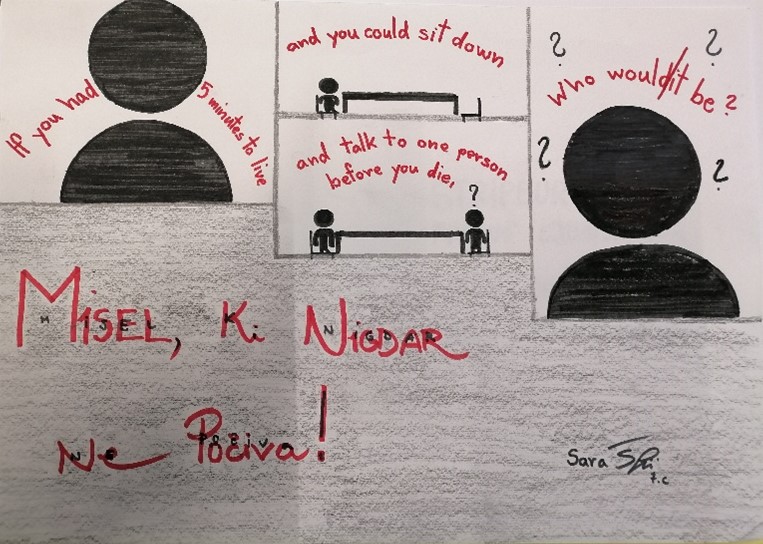 If you had
5 minutes to live
and you could sit down
and talk to one person
before you die,
?
Who would/it be?
? ?
? ?
MISEL, Ki NIGDAR
Ne Počiva!
Sara
7.c